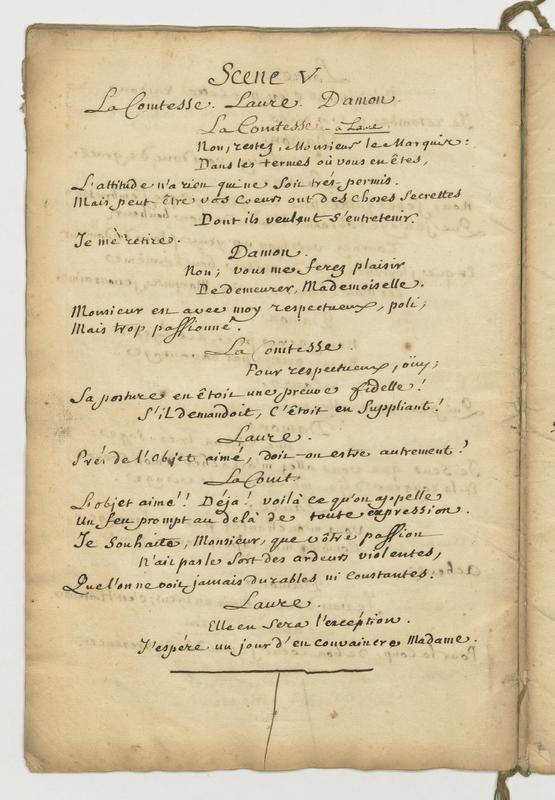 Scene V
La Comtesse. Laure. Damon.
La Comtesse à Laure
Non, restez, Monsieur le Marquis:
Dans les termes où vous en êtes,
L'attitude n'a rien qui ne soit très-permis.
Mais peut-être vos coeurs ont des choses secrettes
Dont ils veulent s'entretenir.
Je me retire.
Damon.
Non; vous me ferez plaisir
De demeurer, Mademoiselle.
Monsieur est avec moy respectueux, poli;
Mais trop passionné.
La Comtesse.
Pour respectueux, oüy;
Sa posture en êtoit une préuve fidelle!
S'il demandoit, C'êtoit en Suppliant!
Laure.
Prés de l'Objet aimé, doit-on estre autrement?
La Comt.
L'objet aimé!! Déja! voilà ce qu'on appelle
Un feu prompt au delà de toute expression.
Je Souhaite, Monsieur, que vôtre passion
N'ait pas le Sort des ardeurs violentes,
Que l'on ne voit jamais durables ni constantes.
Laure.
Elle en Sera l'exception.
J'espére un jour d'en convaincre Madame.